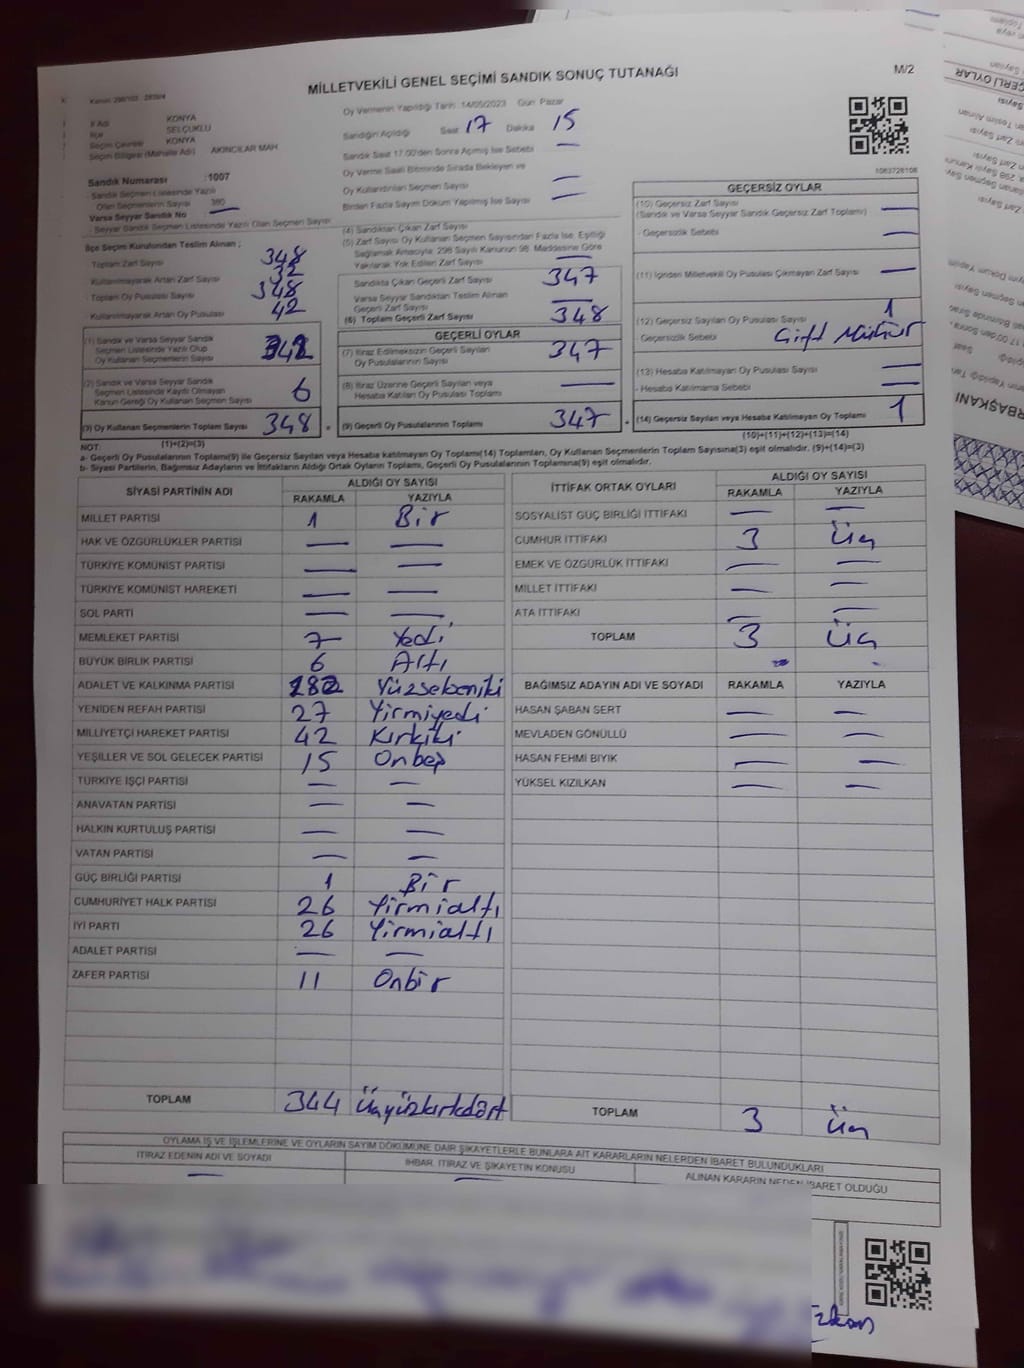 MİLLETVEKİLİ GENEL SEÇİMİ SANDIK SONUÇ TUTANAĞI
M/2
Oy Vermenin Yapıldığı Tarih :14/05/2023 Gün: Pazar
İl Adı KONYA
İlçe SELÇUKLU
Seçim Çevresi KONYA
Seçim Bölgesi (Mahalle Adı) AKINCILAR MAH
Sandığın Açıldığı Saat 17 Dakika 15
Sandık Saat 17.00'den Sonra Açılmış İse Sebebi —
Oy Verme Saati Bitiminde Sırada Bekleyen ve
Oy Kullandırılan Seçmen Sayısı —
Birden Fazla Sayım Döküm Yapılmış İse Sayısı —
1063728108
Sandık Numarası :1007
- Sandık Seçmen Listesinde Yazılı
Olan Seçmenlerin Sayısı 380
Varsa Seyyar Sandık No —
- Seyyar Sandık Seçmen Listesinde Yazılı Olan Seçmen Sayısı
İlçe Seçim Kurulundan Teslim Alınan ;
Toplam Zarf Sayısı 348
- Kullanılmayarak Artan Zarf Sayısı 32
- Toplam Oy Pusulası Sayısı 348
- Kullanılmayarak Artan Oy Pusulası 42
(1) Sandık ve Varsa Seyyar Sandık
Seçmen Listesinde Yazılı Olup
Oy Kullanan Seçmenlerin Sayısı 342
(2) Sandık ve Varsa Seyyar Sandık
Seçmen Listesinde Kayıtlı Olmayan
Kanun Gereği Oy Kullanan Seçmen Sayısı 6
(3) Oy Kullanan Seçmenlerin Toplam Sayısı 348
(1)+(2)=(3)
(4) Sandıktan Çıkan Zarf Sayısı
(5) Zarf Sayısı Oy Kullanan Seçmen Sayısından Fazla İse, Eşitliği
Sağlamak Amacıyla; 298 Sayılı Kanunun 98. Maddesine Göre
Yakılarak Yok Edilen Zarf Sayısı
Sandıkta Çıkan Geçerli Zarf Sayısı 347
Varsa Seyyar Sandıktan Teslim Alınan
Geçerli Zarf Sayısı —
(6) Toplam Geçerli Zarf Sayısı 348
GEÇERLİ OYLAR
(7) İtiraz Edilmeksizin Geçerli Sayılan
Oy Pusulalarının Sayısı 347
(8) İtiraz Üzerine Geçerli Sayılan veya
Hesaba Katılan Oy Pusulası Toplamı —
(9) Geçerli Oy Pusulalarının Toplamı 347
GEÇERSİZ OYLAR
(10) Geçersiz Zarf Sayısı
(Sandık ve Varsa Seyyar Sandık Geçersiz Zarf Toplamı) —
- Geçersizlik Sebebi —
(11) İçinden Milletvekili Oy Pusulası Çıkmayan Zarf Sayısı —
(12) Geçersiz Sayılan Oy Pusulası Sayısı 1
Geçersizlik Sebebi Çift Mühür
(13) Hesaba Katılmayan Oy Pusulası Sayısı —
- Hesaba Katılmama Sebebi —
(14) Geçersiz Sayılan veya Hesaba Katılmayan Oy Toplamı 1
(10)+(11)+(12)+(13)=(14)
NOT:
a- Geçerli Oy Pusulalarının Toplamı(9) ile Geçersiz Sayılan veya Hesaba katılmayan Oy Toplamı(14) Toplamları, Oy Kullanan Seçmenlerin Toplam Sayısına(3) eşit olmalıdır. (9)+(14)=(3)
b- Siyasi Partilerin, Bağımsız Adayların ve İttifakların Aldığı Ortak Oyların Toplamı, Geçerli Oy Pusulalarının Toplamına(9) eşit olmalıdır.
SİYASİ PARTİNİN ADI ALDIĞI OY SAYISI
RAKAMLA YAZIYLA
MİLLET PARTİSİ 1 Bir
HAK VE ÖZGÜRLÜKLER PARTİSİ — —
TÜRKİYE KOMÜNİST PARTİSİ — —
TÜRKİYE KOMÜNİST HAREKETİ — —
SOL PARTİ — —
MEMLEKET PARTİSİ 7 Yedi
BÜYÜK BİRLİK PARTİSİ 6 Altı
ADALET VE KALKINMA PARTİSİ 182 Yüzsekseniki
YENİDEN REFAH PARTİSİ 27 Yirmiyedi
MİLLİYETÇİ HAREKET PARTİSİ 42 Kırkiki
YEŞİLLER VE SOL GELECEK PARTİSİ 15 Onbeş
TÜRKİYE İŞÇİ PARTİSİ — —
ANAVATAN PARTİSİ — —
HALKIN KURTULUŞ PARTİSİ — —
VATAN PARTİSİ — —
GÜÇ BİRLİĞİ PARTİSİ 1 Bir
CUMHURİYET HALK PARTİSİ 26 Yirmialtı
İYİ PARTİ 26 Yirmialtı
ADALET PARTİSİ — —
ZAFER PARTİSİ 11 Onbir
TOPLAM 344 Üçyüzkırkdört
İTTİFAK ORTAK OYLARI ALDIĞI OY SAYISI
RAKAMLA YAZIYLA
SOSYALİST GÜÇ BİRLİĞİ İTTİFAKI — —
CUMHUR İTTİFAKI 3 Üç
EMEK VE ÖZGÜRLÜK İTTİFAKI — —
MİLLET İTTİFAKI — —
ATA İTTİFAKI — —
TOPLAM 3 Üç
BAĞIMSIZ ADAYIN ADI VE SOYADI RAKAMLA YAZIYLA
HASAN ŞABAN SERT — —
MEVLADEN GÖNÜLLÜ — —
HASAN FEHMİ BIYIK — —
YÜKSEL KIZILKAN — —
TOPLAM 3 Üç
OYLAMA İŞ VE İŞLEMLERİNE VE OYLARIN SAYIM DÖKÜMÜNE DAİR ŞİKAYETLERLE BUNLARA AİT KARARLARIN NELERDEN İBARET BULUNDUKLARI
İTİRAZ EDENİN ADI VE SOYADI
İHBAR, İTİRAZ VE ŞİKAYETİN KONUSU
ALINAN KARARIN NEDEN İBARET OLDUĞU